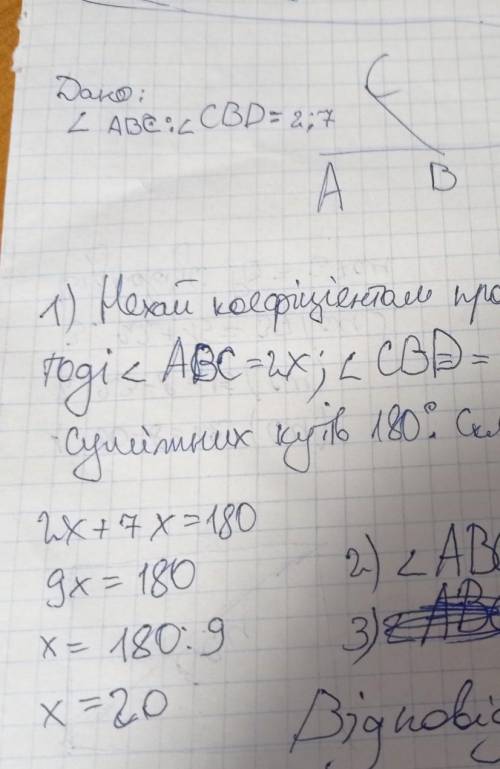 Дано:
∠ ABC:∠ CBD = 2:7
C
A B
1) Нехай коефіцієнтом про
тоді ∠ ABC = 2x; ∠ CBD =
суміжних кутів 180°. Скл
2x + 7x = 180
9x = 180
2) ∠ ABC
x = 180:9
3)
x = 20
Відповід